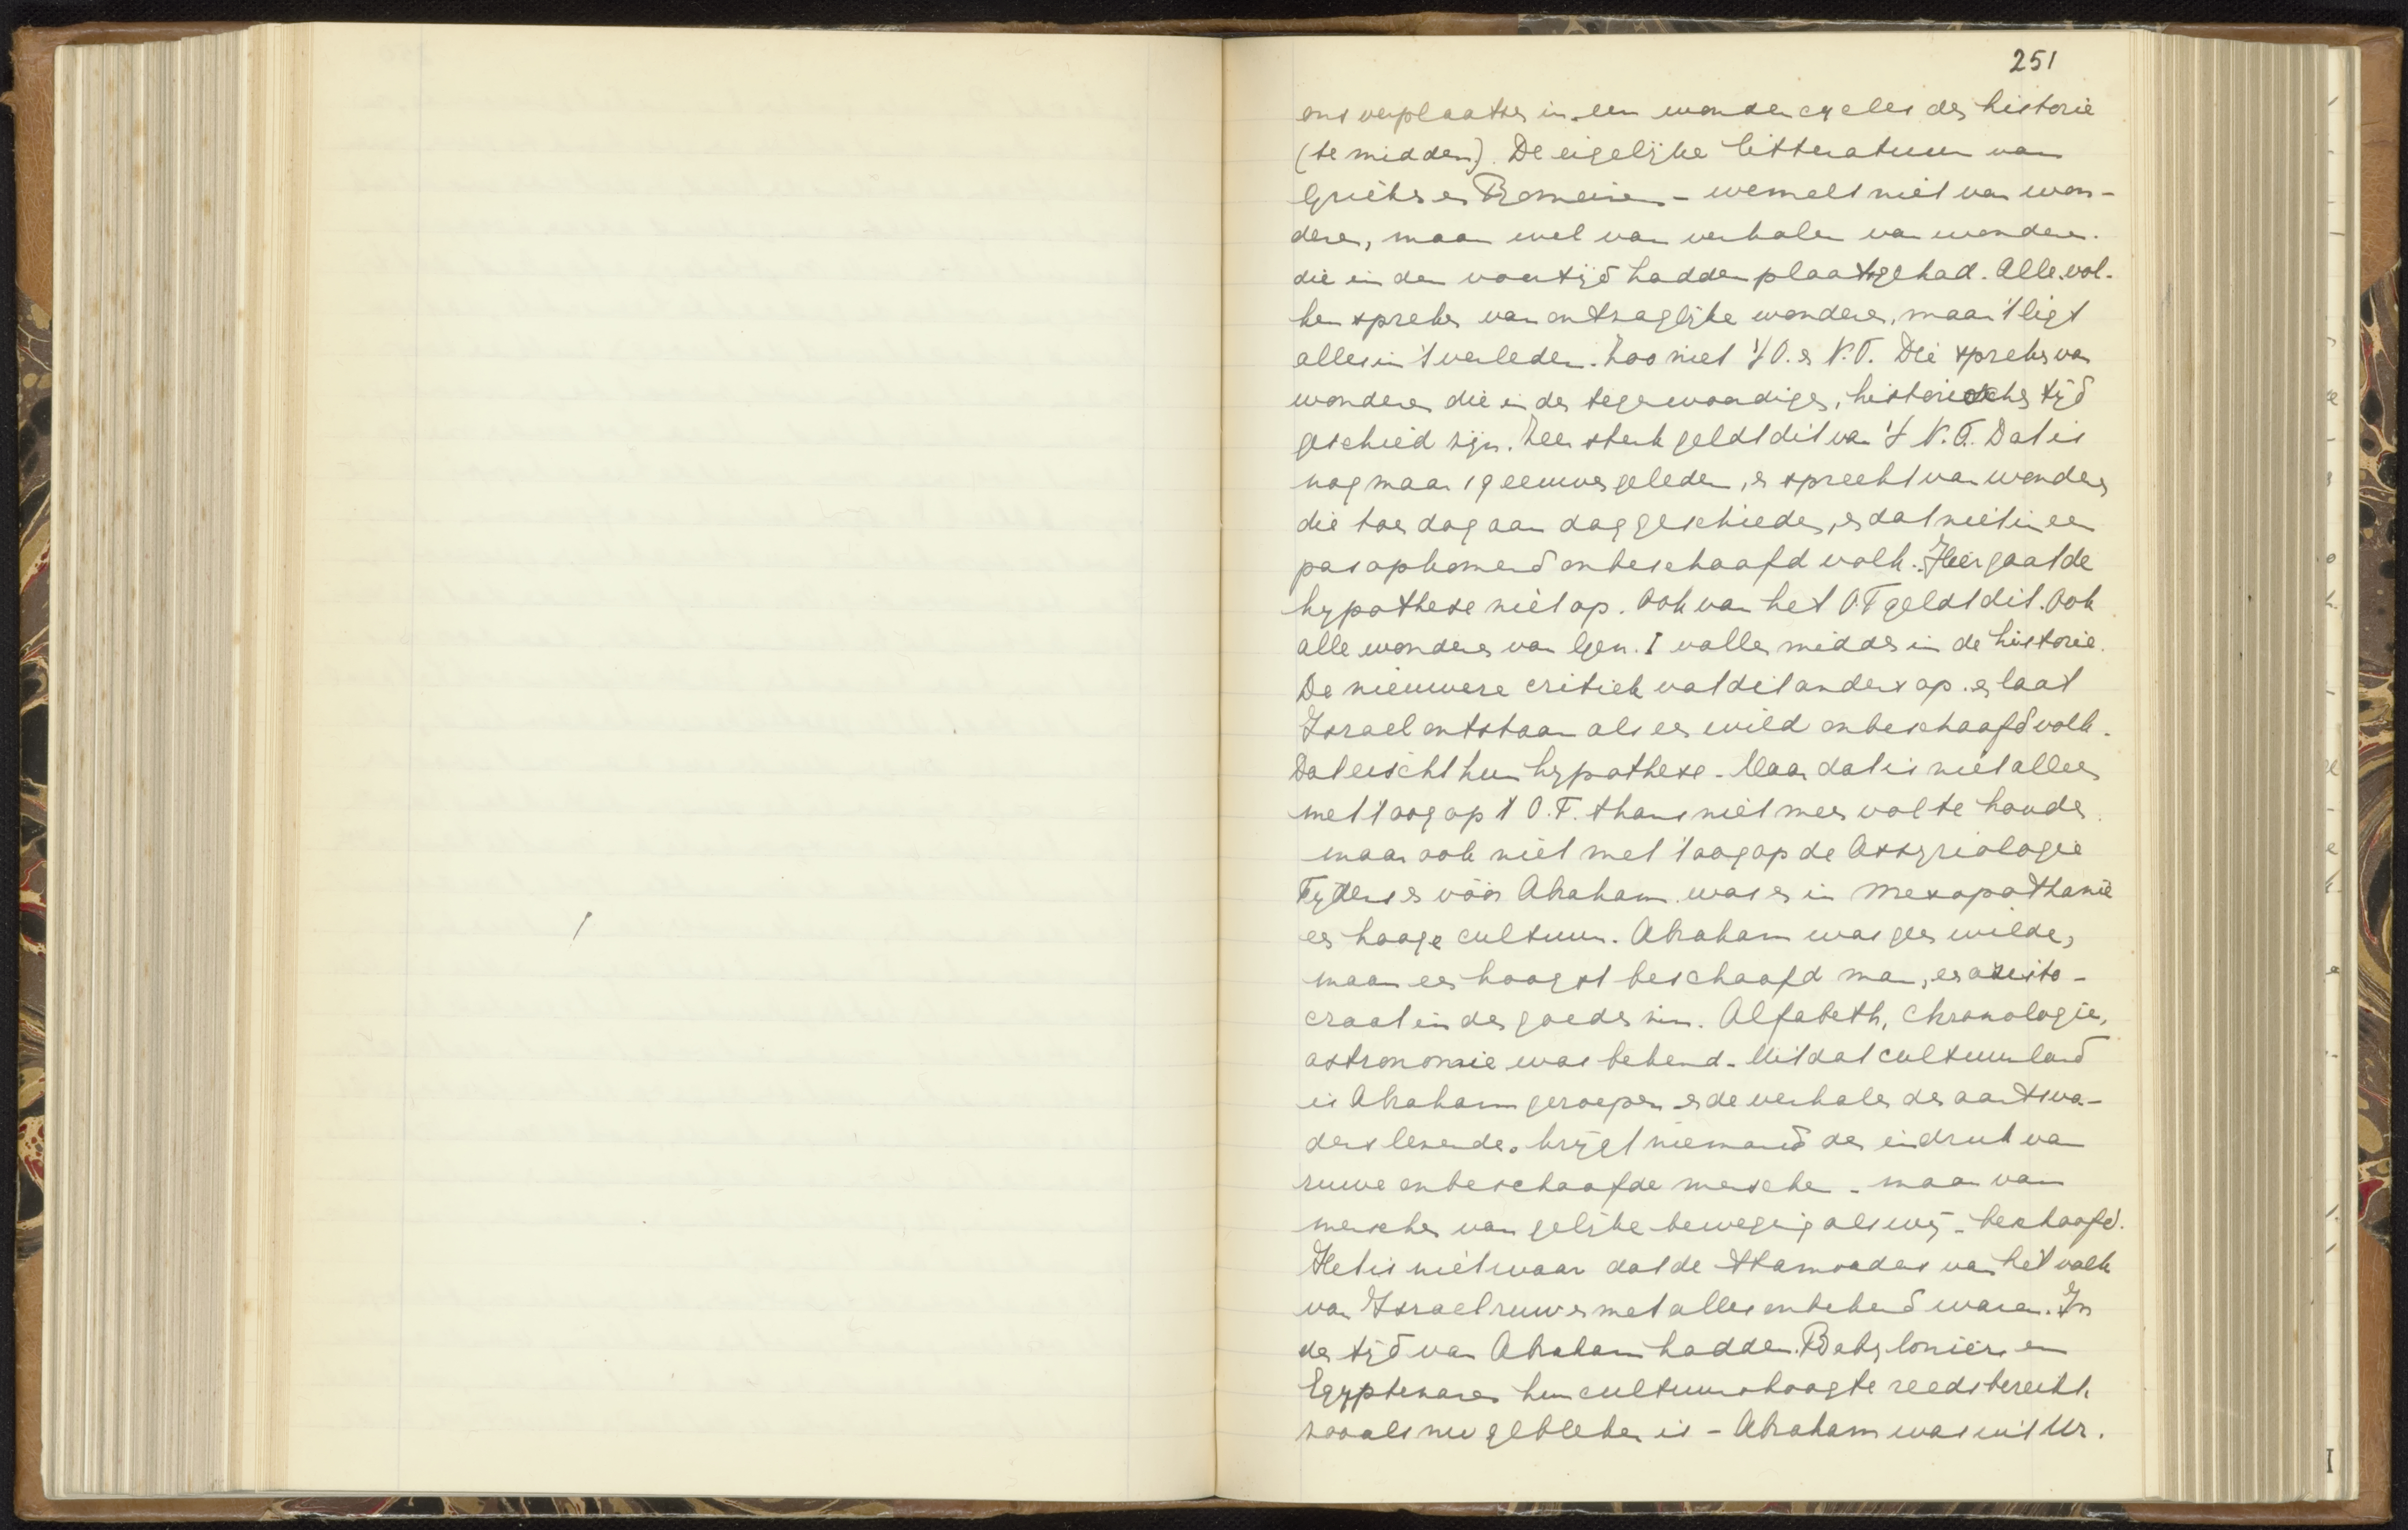 251
ons verplaatsen in een wondercyclus der historie
(te midden). De eigelijke litteratuur van
Grieken en Romeinen - wemelt niet van won-
deren, maar wel van verhalen van wonderen.
die in den voortijd hadden plaatsgehad. Alle vol-
ken spreken van ontzaglijke wonderen, maar 't ligt
alles in 't verleden. Zoo niet 't O. en N.T. Die spreken van
wonderen die in den tegenwoordigen, historischen tijd
geschied zijn. Zeer sterk geldt dit van 't N.T. Dat is
nog maar 19 eeuwen geleden, en spreekt van wonderen
die toen dag aan dag geschieden, en dat niet in een
pas opkomend onbeschaafd volk. Hier gaat de
hypothese niet op. Ook van het O.T geldt dit. Ook
alle wonderen van Gen. I vallen midden in de historie.
De nieuwere critiek vat dit anders op. en laat
Israel ontstaan als een wild onbeschaafd volk.
Dat eischt hun hypothese. Maar dat is niet alleen
met 't oog op 't O.T. thans niet meer vol te houden
maar ook niet met 't oog op de Assyriologie
Tijdens en vóór Abraham was er in Mesopothamië
een hooge cultuur. Abraham was geen wilde,
maar een hoogst beschaafd man, een aristo-
craat in den goeden zin. Alfabeth, Chronologie,
astronomie was bekend. Uit dat cultuurland
is Abraham geroepen en de verhalen der aartsva-
ders lezende, krijgt niemand den eindruk van
ruwe onbeschaafde menschen - maar van
menschen van gelijke beweging als wij - beschaafd.
Het is niet waar dat de stamvaders van het volk
van Israel ruw en met alles onbekend waren. In
den tijd van Abraham hadden Babyloniërs en
Egyptenaren hun cultuurhoogte reeds bereikt
zooals nu gebleken is - Abraham was uit Ur.